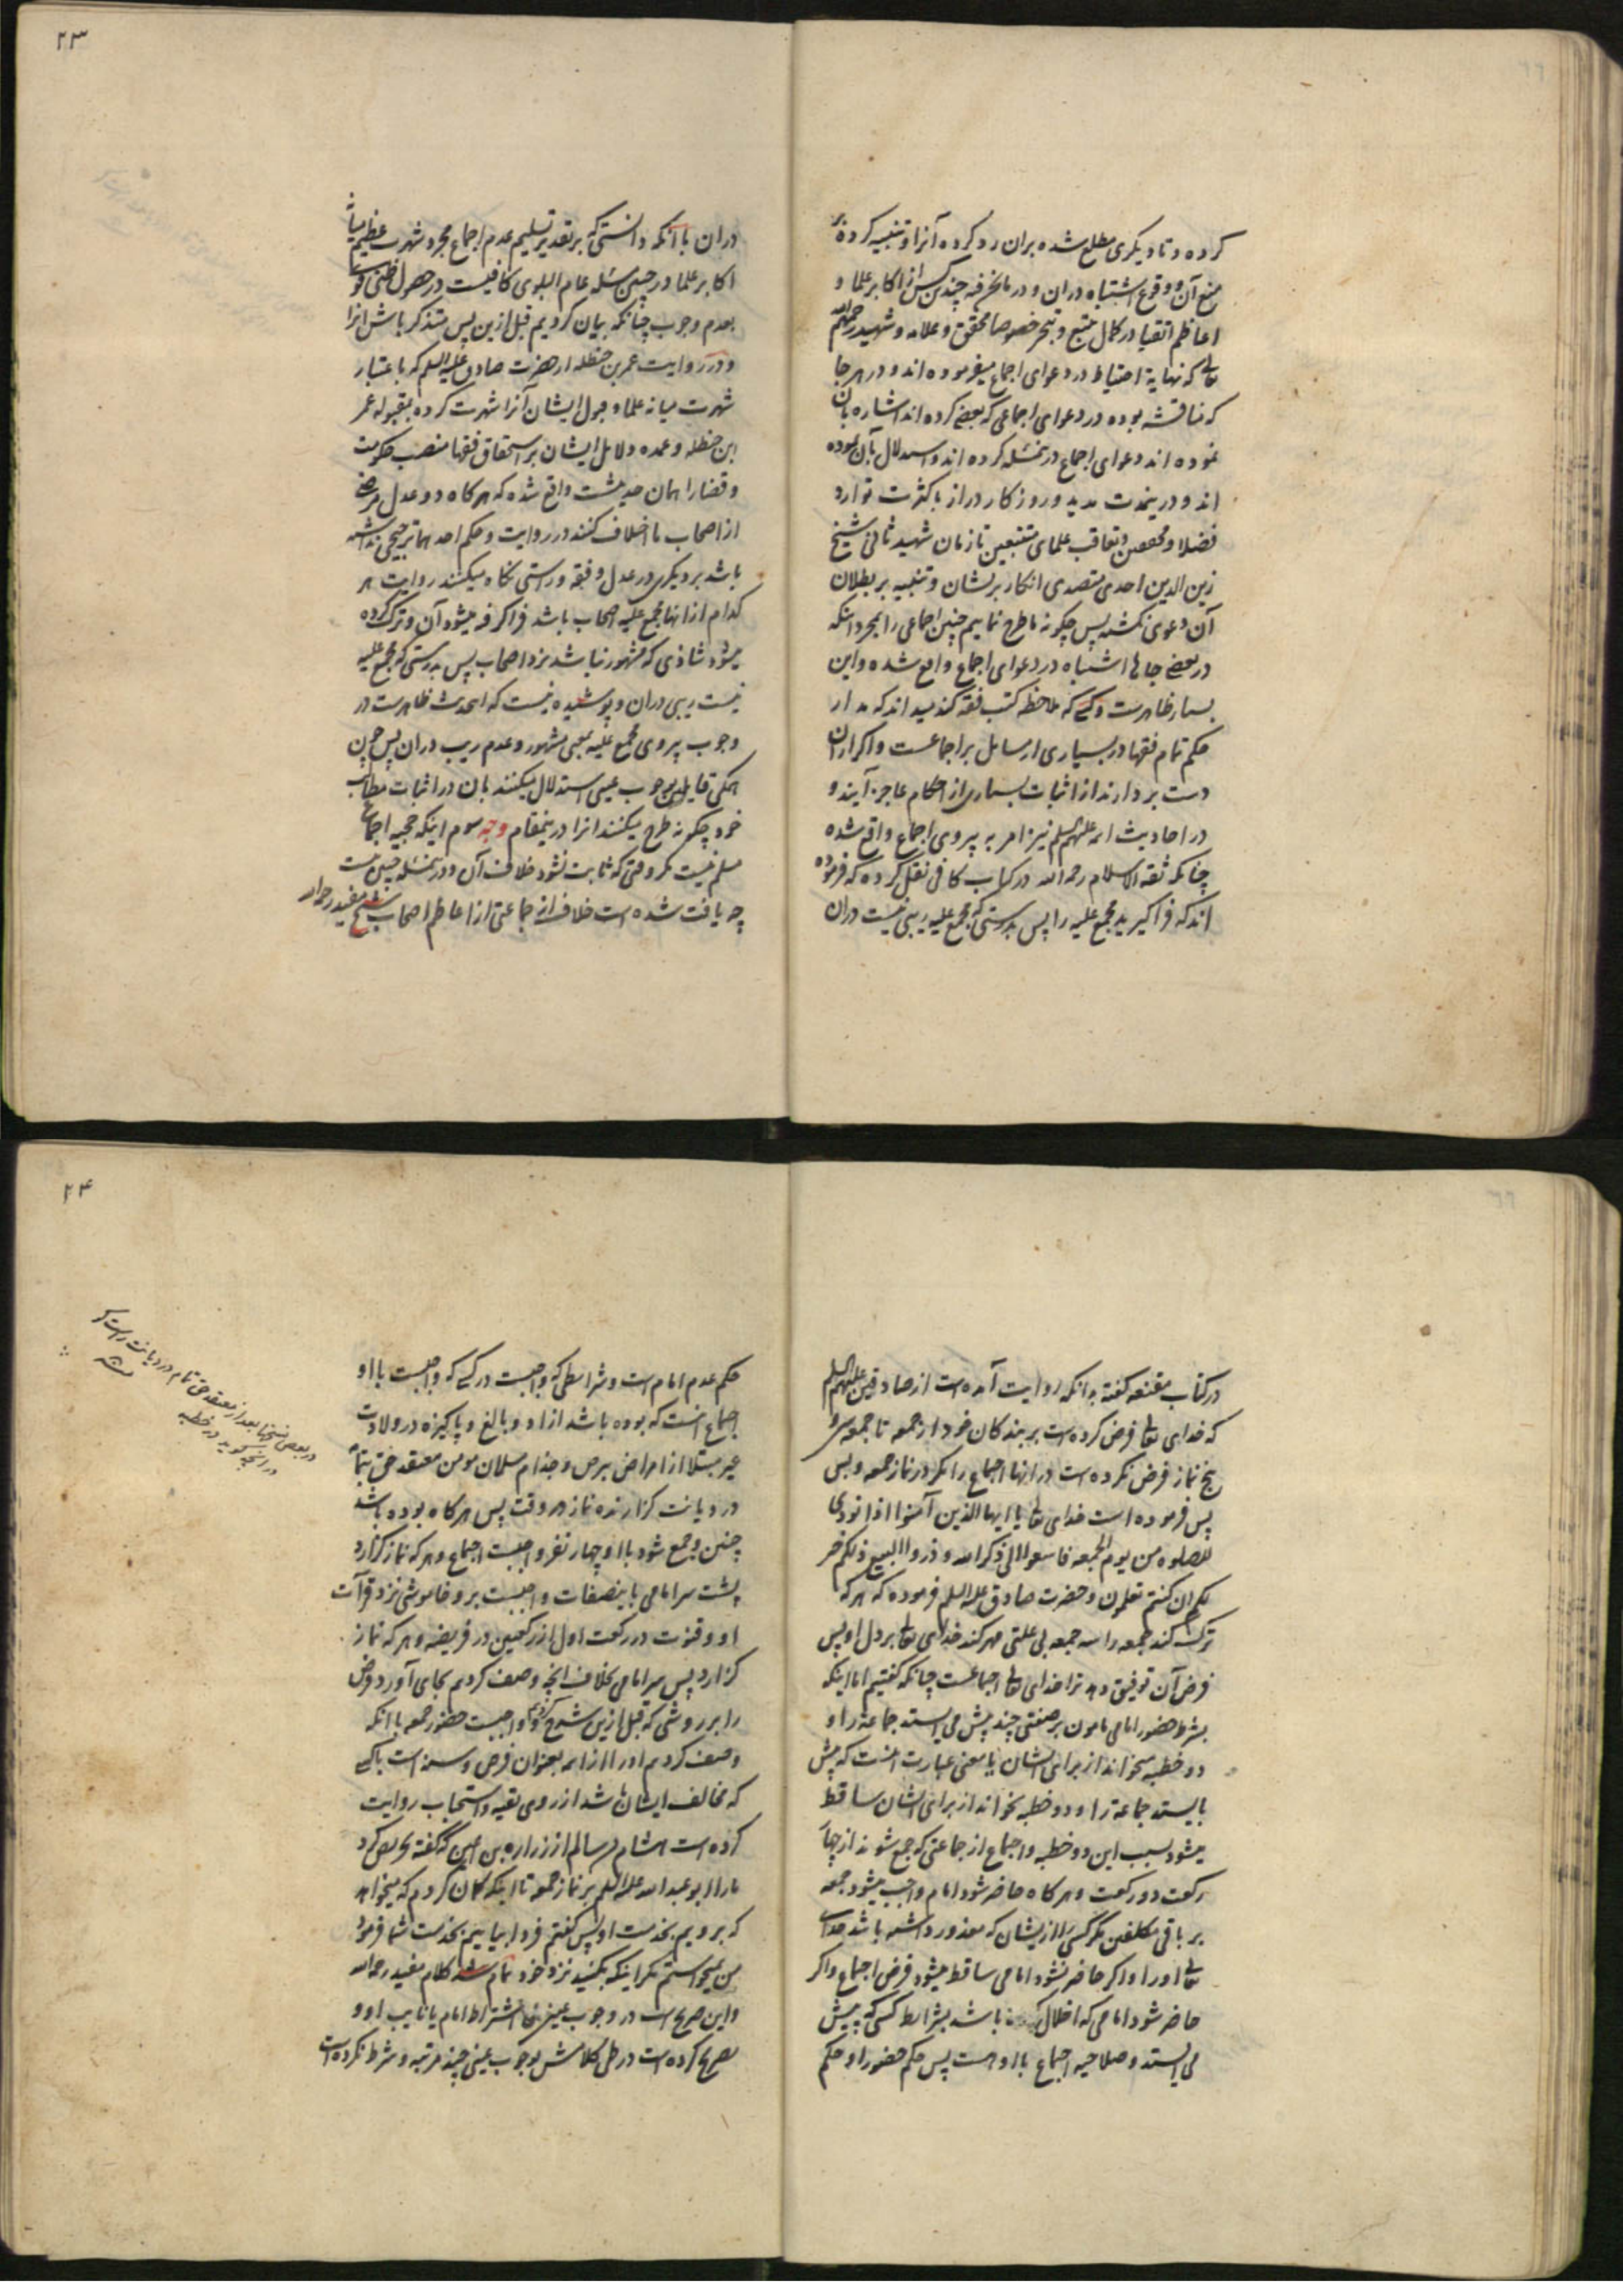 کرده و تا دیکری مطلع شده بران رد کرده آنرا و تنبیه کرده بر
منع آن و وقوع اشتباه دران و در مانحن فیه چندین کس از اکابر علما و
اعاظم اتقیا در کمال تتبع و تبحر خصوصا محقق و علامه و شهید رحمهم الله
تعالی که نهایة احتیاط در دعوای اجماع میفرموده اند و در هر جا
که مناقشه بوده در دعوای اجماعی که بعضی کرده اند اشاره بان
نموده اند دعوای اجماع درینمسئله کرده اند و استدلال بآن نموده
اند و درینمدت مدید و روزکار دراز با کثرت توارد
فضلا و محققین و تعاقب علمای متتبعین تا زمان شهید ثانی شیخ
زین الدین احدی متصدی انکار بریشان و تنبیه بر بطلان
آن دعوی نکشته پس چکونه ما طرح نماییم چنین اجماعی را بمجرد اینکه
در بعضی جاها اشتباه در دعوای اجماع واقع شده و این
بسیار ظاهرست و کسی که ملاحظه کتب فقه کند میداند که مدار
حکم تمام فقها در بسیاری از مسایل بر اجماعست و اکر ازان
دست بردارند از اثبات بسیاری از احکام عاجز آیند و
در احادیث ائمه علیهم السلم نیز امر به پیروی اجماع واقع شده
چنانکه ثقة الاسلام رحمه الله در کتاب کافی نقل کرده که فرموده
اند که فراکیرید مجمع علیه را پس بدرستی که مجمع علیه ریبی نیست دران
۲۳
دران با آنکه دانستی که بر تقدیر تسلیم عدم اجماع مجرد شهرت عظیم میانه
اکابر علما در چنین مسئله عام البلوی کافیست در حصول ظنی قوی
بعدم وجوب چنانکه بیان کردیم قبل ازین پس متذکر باش انرا
و در روایت عمر بن حنظله از حضرت صادق علیه السلم که باعتبار
شهرت میانه علما و قبول ایشان آنرا شهرت کرده بمقبوله عمر
ابن حنظله و عمده دلایل ایشان بر استحقاق فقها منصب حکومت
و قضا را همان حدیثست واقع شده که هرکاه دو عدل مرضی
از اصحاب ما اختلاف کنند در روایت و حکم احد هما ترجیحی نداشته
باشد بر دیکری در عدل و فقه و راستی نکاه میکنند روایت هر
کدام از انها مجمع علیه اصحاب باشد فراکرفه میشود آن و ترک کرده
میشود شاذی که مشهور نباشد نزد اصحاب پس بدرستی که مجمع علیه
نیست ریبی دران و پوشیده نیست که اینحدیث ظاهرست در
وجوب پیروی مجمع علیه بمعنی مشهور و عدم ریب دران پس چون
همکی قایلین بوجوب عینی استدلال میکنند بان در اثبات مطالب
خود چکونه طرح میکنند انرا درینمقام وجه سوم اینکه حجیة اجماع
مسلم نیست مکر وقتی که ثابت نشود خلاف آن و درینمسئله چنین نیست
چه یافت شده است خلاف از جماعتی از اعاظم اصحاب شیخ مفید رحمه الله
در کتاب مقنعه کفته بدانکه روایت آمده است از صادقین علیهم السلم
که خدای تعالی فرض کرده است بر بندکان خود از جمعه تا جمعه سی و
پنج نماز فرض نکرده است در انها اجتماع را مکر در نماز جمعه و بس
پس فرموده است خدای تعالی یا ایها الذین آمنوا اذا نودی
للصلوه من یوم الجمعه فاسعوا الی ذکر الله و ذروا البیع ذلکم خیر
لکم ان کنتم تعلمون و حضرت صادق علیه السلم فرموده که هرکه
ترک کند جمعه را سه جمعه بی علتی مهر کند خدای تعالی بر دل او پس
فرض آن توفیق دهد ترا خدای تعالی اجتماعست چنانکه کفتیم اما اینکه
بشرط حضور امامی مامون بر صفتی چند پیش می ایستد جماعة را و
دو خطبه میخواند از برای ایشان یا معنی عبارت اینست که پیش
بایستد جماعة را و دو خطبه بخواند از برای ایشان ساقط
میشود بسبب این دو خطبه و اجتماع از جماعتی که جمع شوند از چهار
رکعت دو رکعت و هرکاه حاضر شود امام واجب میشود جمعه
بر باقی مکلفین مکر کسی را ازیشان که معذور داشته باشد خدای
تعالی او را و اکر حاضر نشود امامی ساقط میشود فرض اجتماع و اکر
حاضر شود امامی که اخلال کرده باشد بشرایط کسی که پیش
می ایستد و صلاحیه اجتماع با او هست پس حکم حضور او حکم
۲۴
حکم عدم امام است و شرایطی که واجبست در کسی که واجبست با او
اجتماع انست که بوده باشد ازاد و بالغ و پاکیزه در ولادت
غیر مبتلا از امراض برص و جذام مسلمان مومن معتقد حق بتمام
در دیانت کزارنده نماز در وقت پس هرکاه بوده باشد
چنین و جمع شود با او چهار نفر واجبست اجتماع و هرکه نماز کزارد
پشت سر امامی باینصفات واجبست برو خاموشی نزد قرآت
او و قنوت در رکعت اول از رکعتین در فریضه و هرکه نماز
کزارد پس سر امامی بخلاف انچه وصف کردیم بجای آورد فرض
را بر روشی که قبل ازین شرح کردیم و واجبست حضور جمعه با انکه
وصف کردیم او را از ائمه بعنوان فرض و سنه است با کسی
که مخالف ایشان باشد از روی تقیه و استحباب روایت
کرده است هشام بن سالم از زراره بن اعین که کفته تحریص کرد
ما را ابو عبد الله علیه السلم بر نماز جمعه تا اینکه کمان کردم که میخواهد
که برویم بخدمت او پس کفتم فردا بیاییم بخدمت شما فرمود
من نمیخواستم مکر اینکه بکنید نزد خود تمام شد کلام مفید رحمه الله
و این صریح است در وجوب عینی اشتراط امام یا نایب او و
تصریح کرده است در طی کلامش بوجوب عینی چند مرتبه و شرط نکرده است
در بعضی نسخها بعد از معتقد حق تمام در دیانت راست کو
در انچه کوید در خطبه
منه